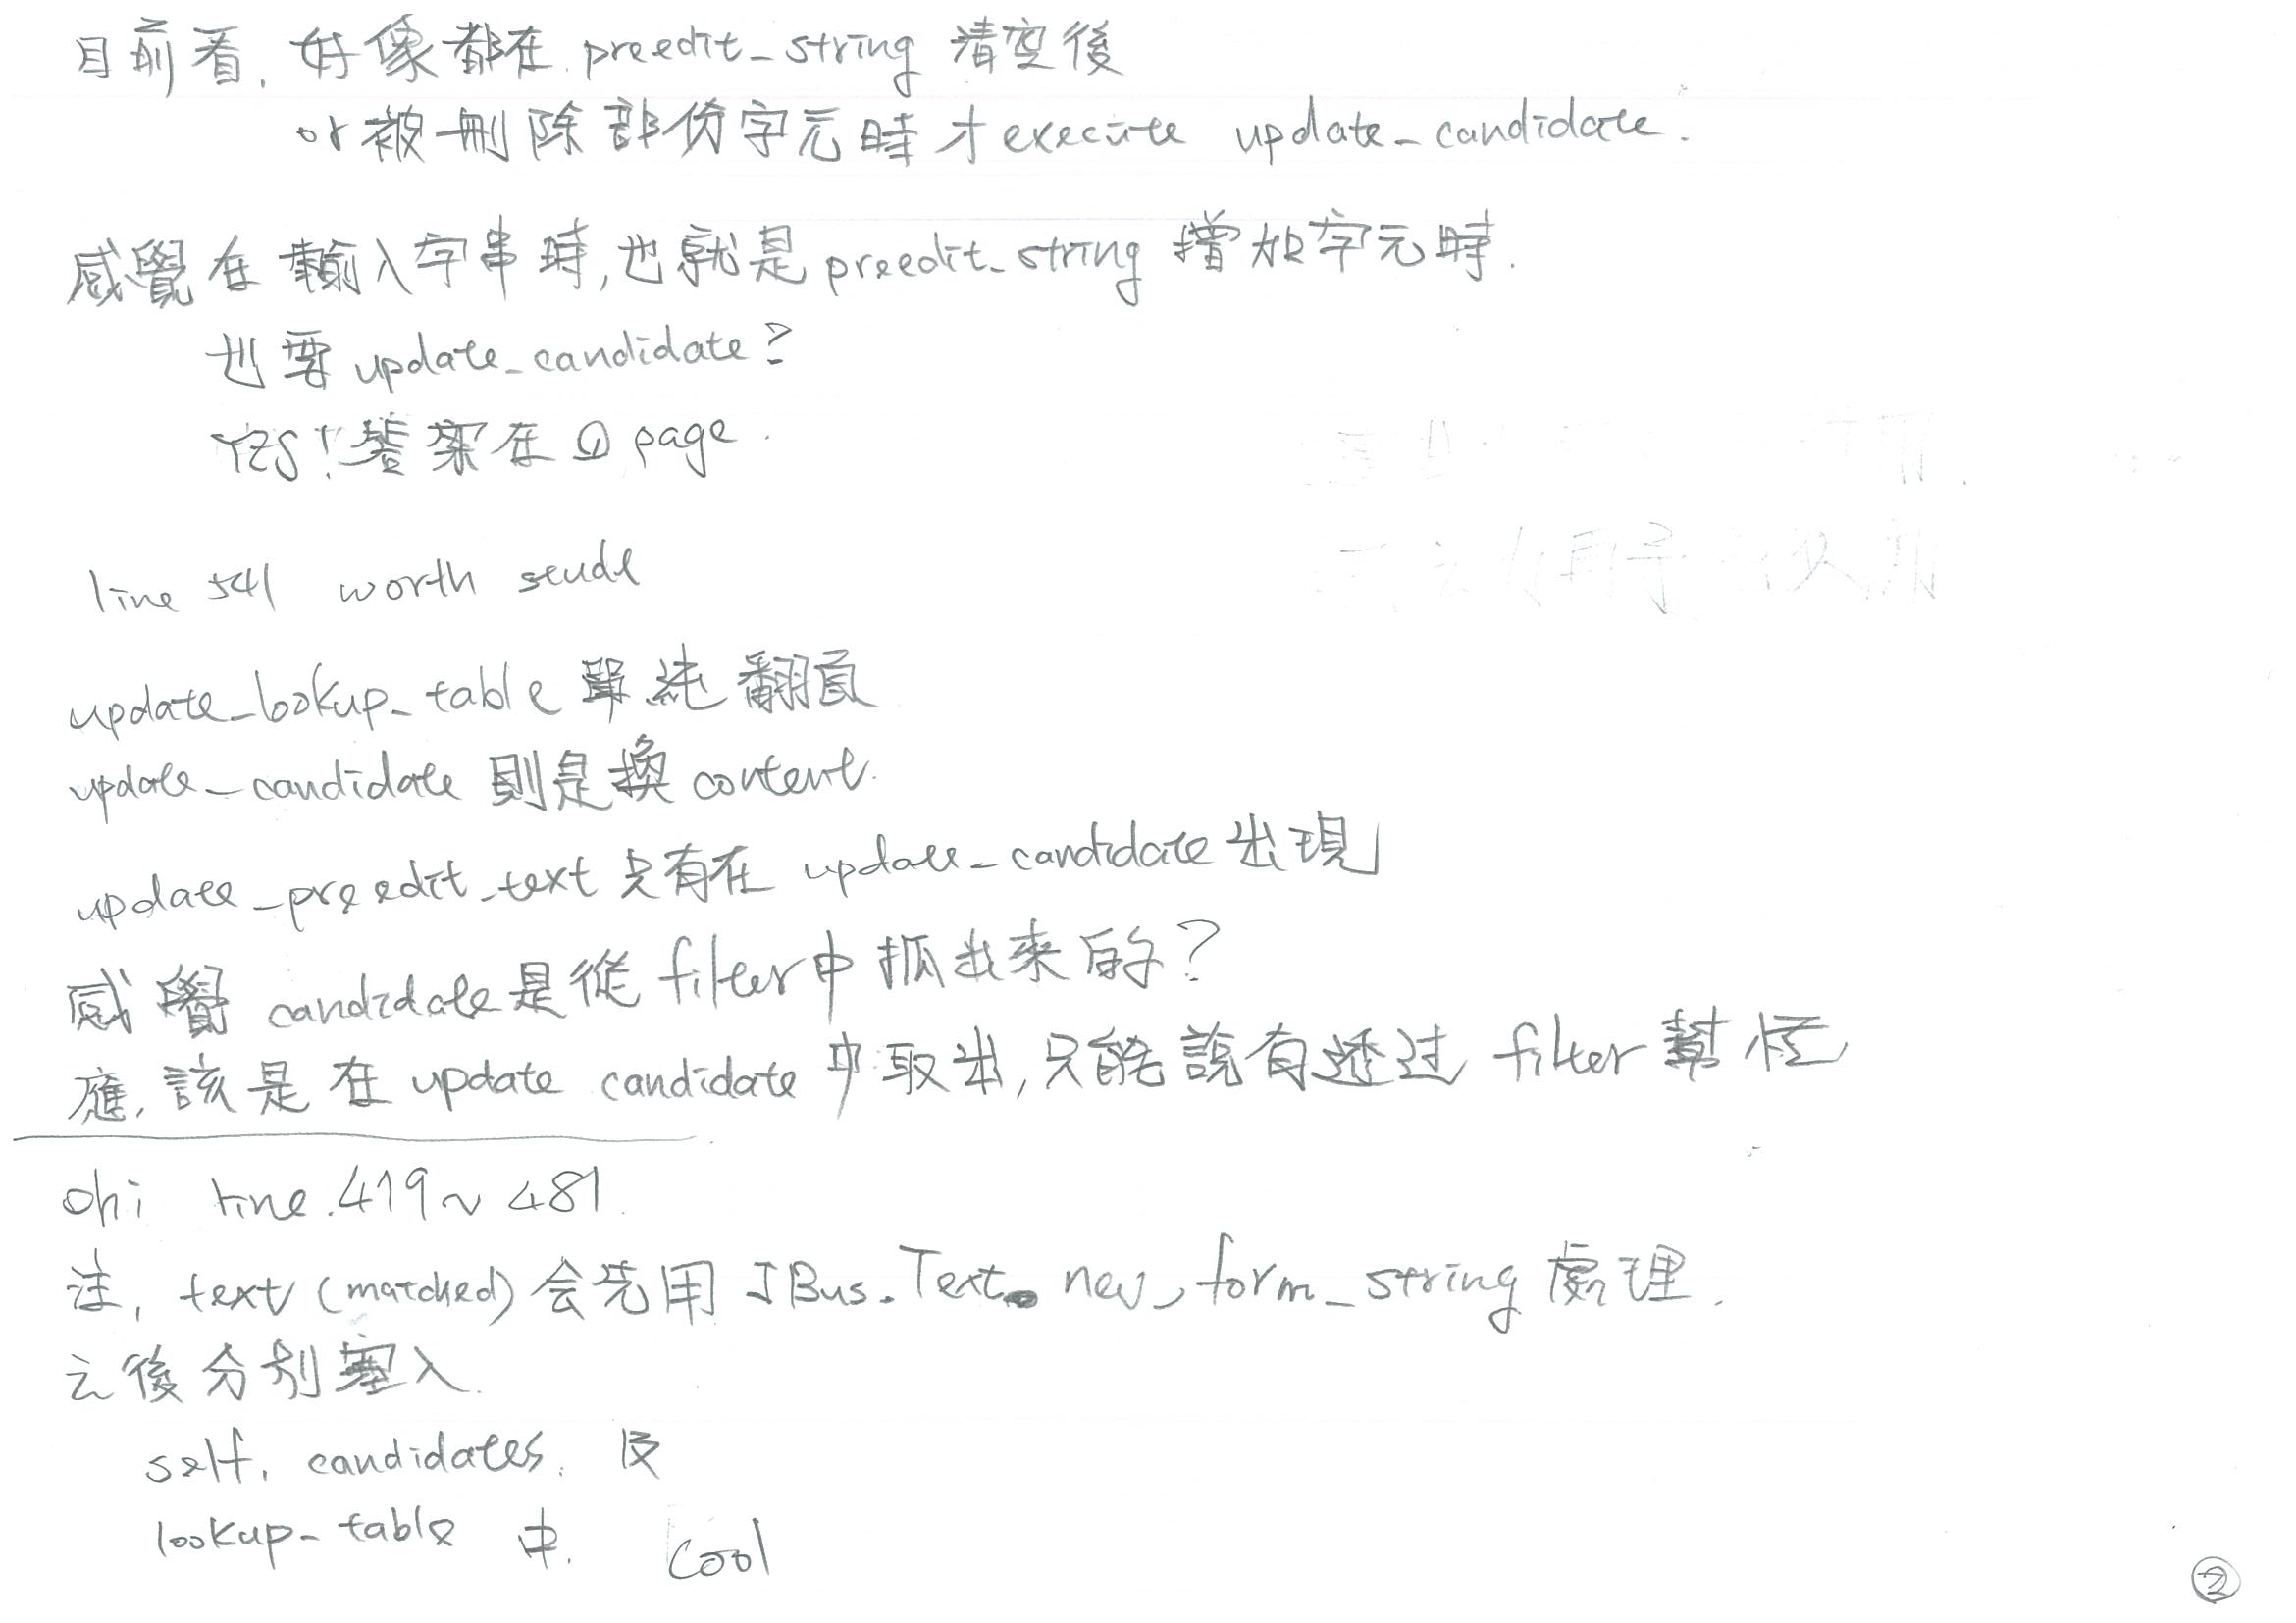 目前看, 好像都在 preedit_string 清空後
or 被刪除部份字元時才 execute update_candidate.
感覺在輸入字串時,也就是 preedit_string 增加字元時.
也要 update_candidate?
YES! 答案在 ① page.
line 541 worth
update_lookup_table 單純翻頁
update_candidate 則是換 content.
update_preedit_text 只有在 update_candidate 出現
感覺 candidate是從 filter中抓出來的?
應該是在 update candidate 中取出, 只能說有透过 filter 幫忙
line.419~481.
注, text (matched) 会先用 IBus.Text. new_form_string 處理.
之後分別塞入
self. candidates. 及
lookup_table 中. Cool
②